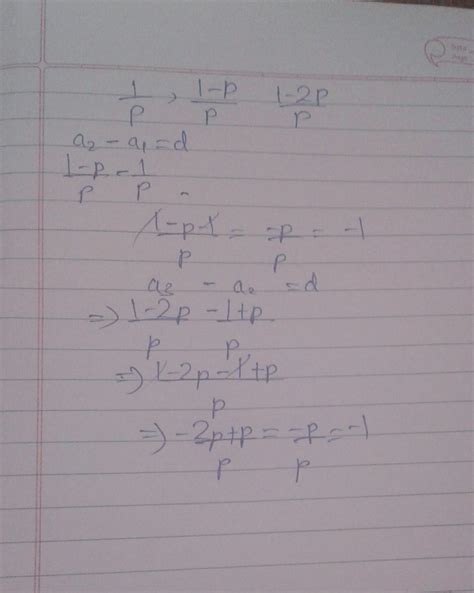 1/p , 1-p/p 1-2p/p
a₂ - a₁ = d
1-p/p - 1/p -
1-p-1/p = -p/p = -1
a₃ - a₂ = d
=> 1-2p/p -1+p/p
=> 1-2p-1+p/p
=> -2p+p/p = -p/p = -1